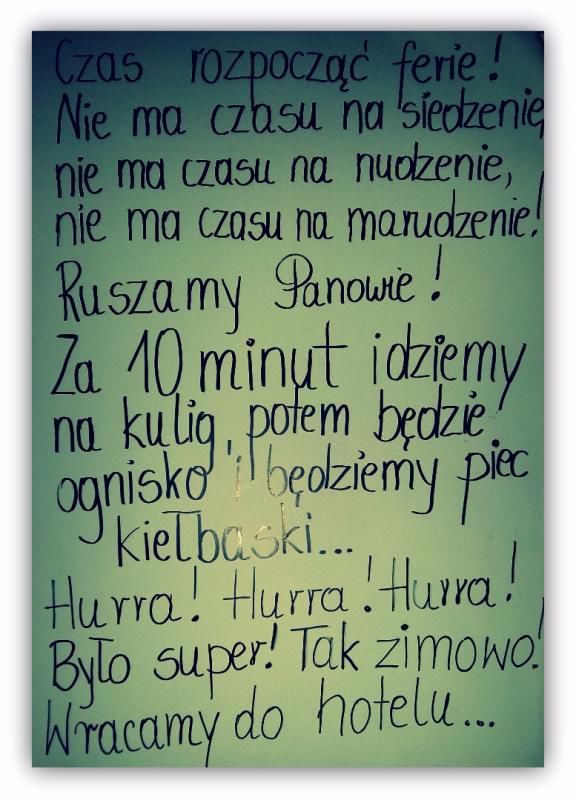 Czas rozpocząć ferie!
Nie ma czasu na siedzenie,
nie ma czasu na nudzenie,
nie ma czasu na marudzenie!
Ruszamy Panowie!
Za 10 minut idziemy
na kulig, potem będzie
ognisko i będziemy piec
kiełbaski...
Hurra! Hurra! Hurra!
Było super! Tak zimowo!
Wracamy do hotelu...